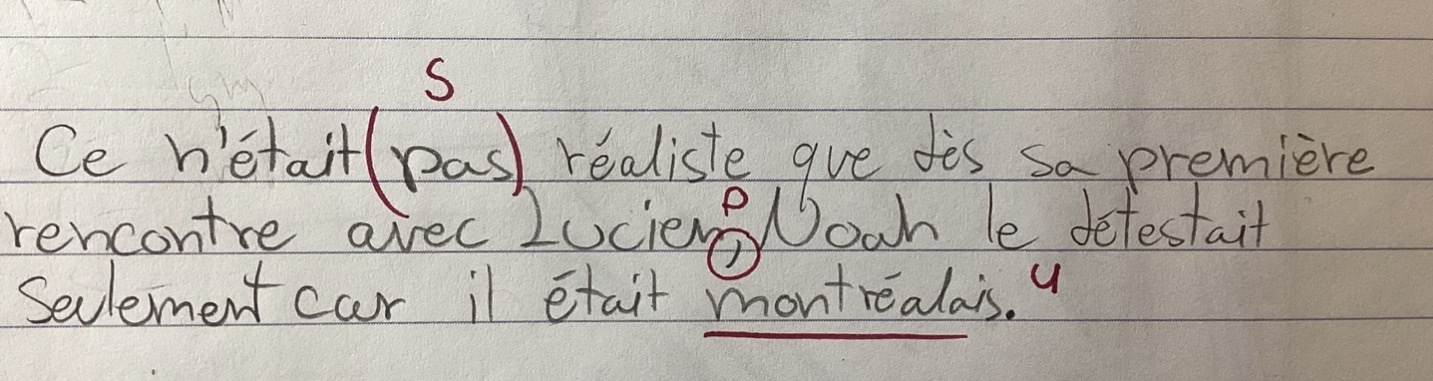 S
Ce n'était (pas) réaliste que dès sa première
P
rencontre avec Lucien, Noah le détestait
Seulement car il était montréalais. U